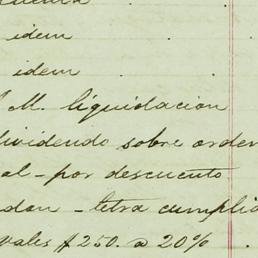 idem
idem
M. liquidacion
dividendo sobre orden
al - por descuento
dan - letra cumplid
vales $250. a 20%